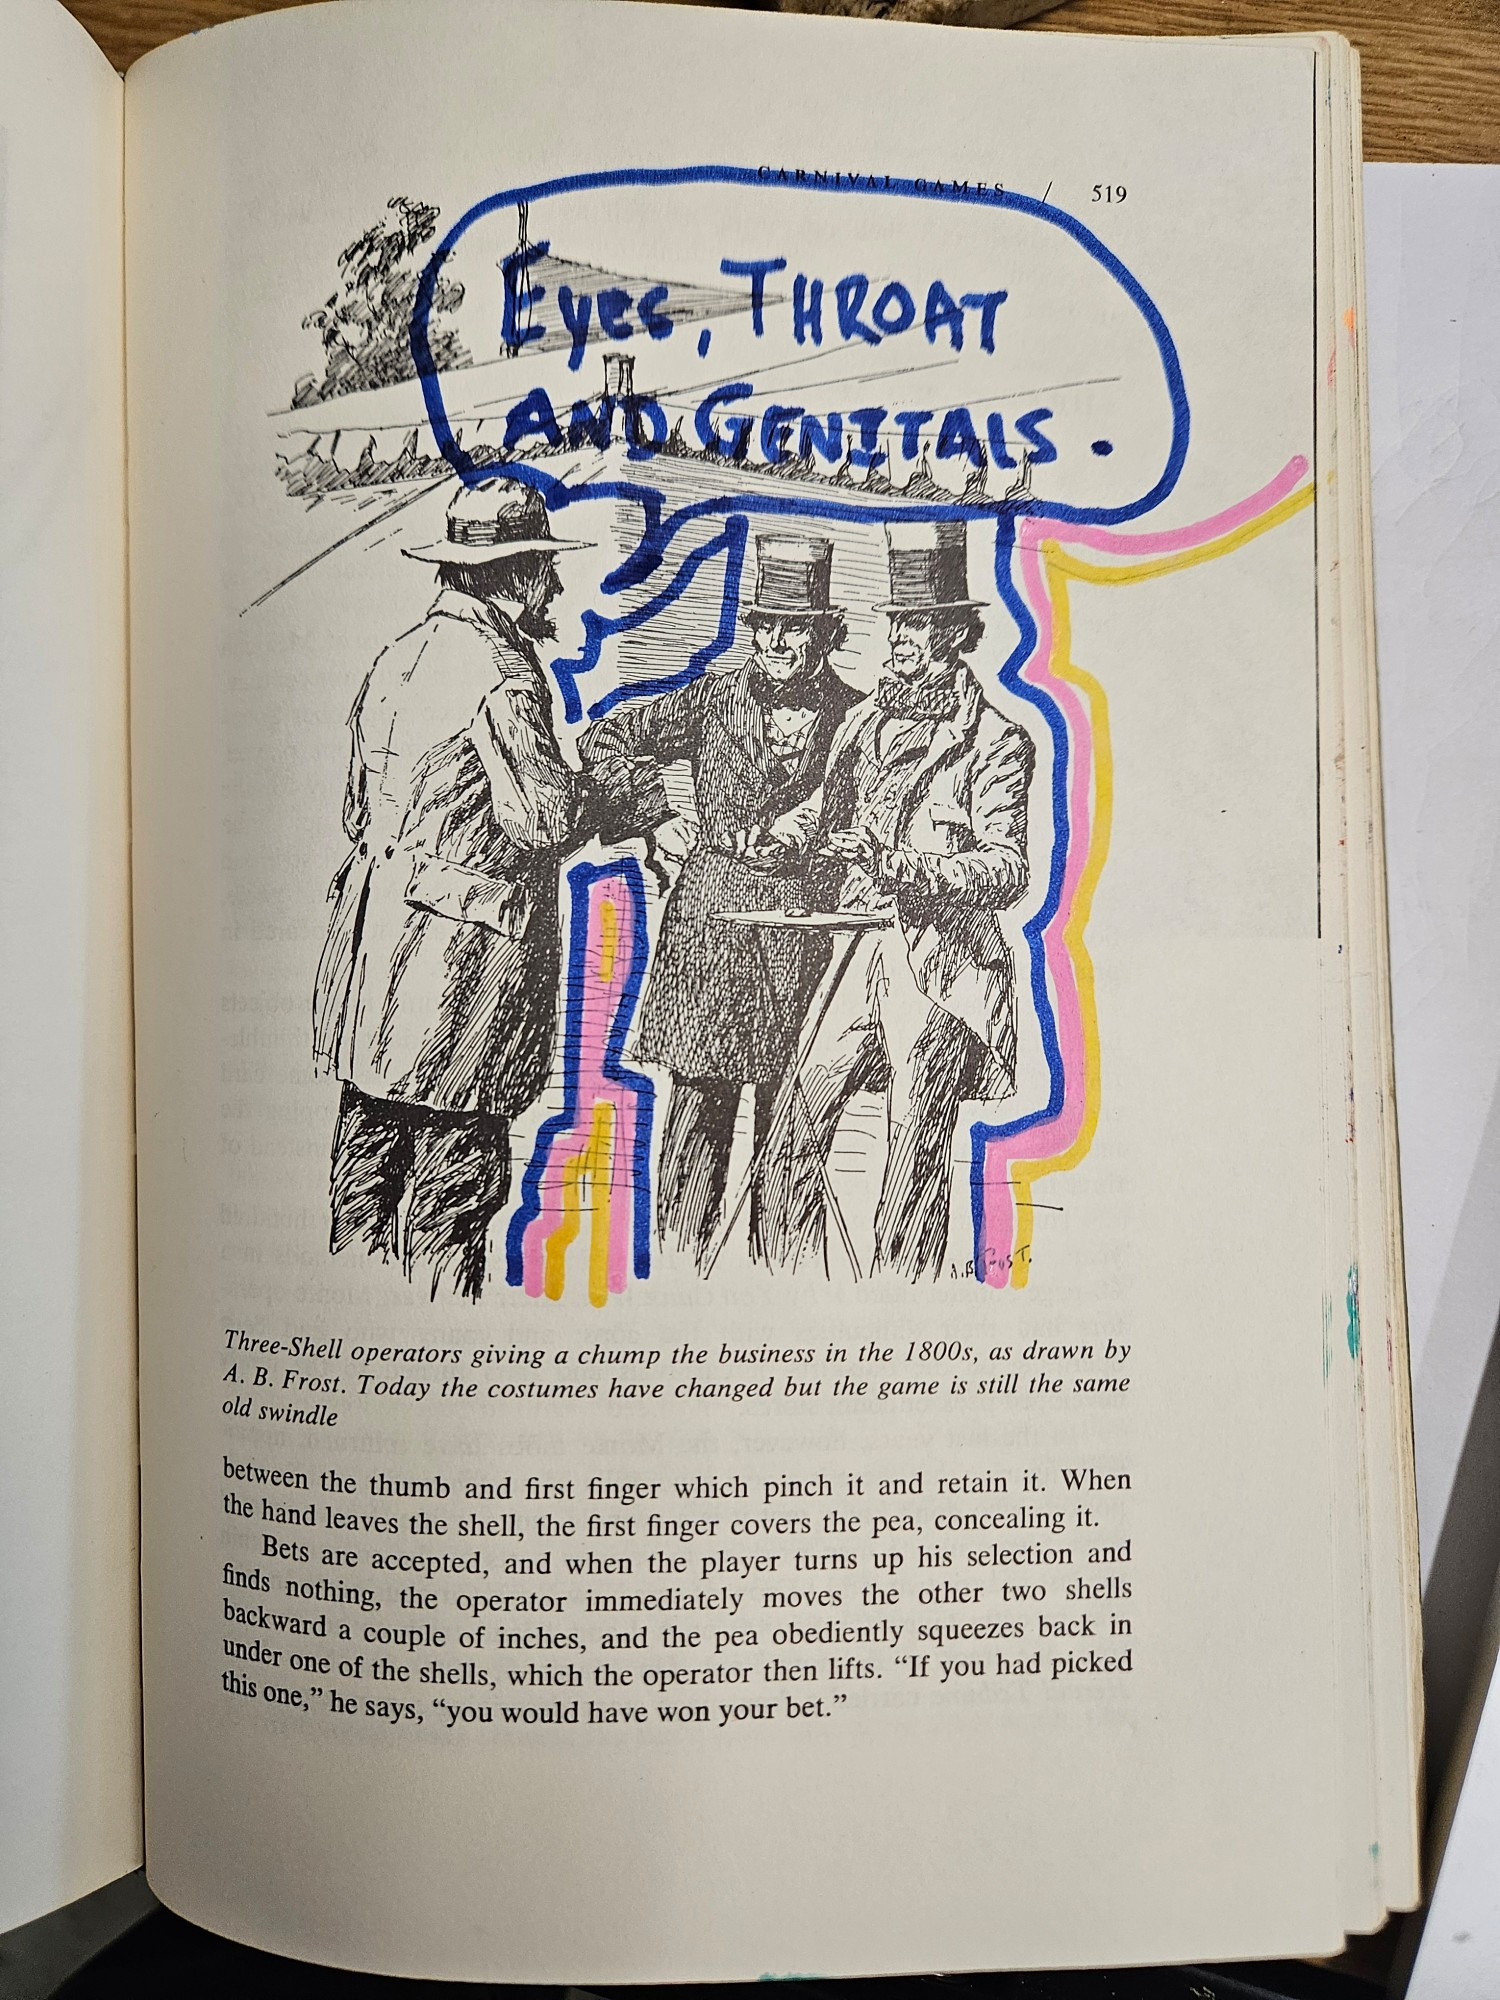 CARNIVAL GAMES / 519
Eyes, THROAT
AND GENITALS.
A.B. Frost.
Three-Shell operators giving a chump the business in the 1800s, as drawn by
A. B. Frost. Today the costumes have changed but the game is still the same
old swindle
between the thumb and first finger which pinch it and retain it. When
the hand leaves the shell, the first finger covers the pea, concealing it.
Bets are accepted, and when the player turns up his selection and
finds nothing, the operator immediately moves the other two shells
backward a couple of inches, and the pea obediently squeezes back in
under one of the shells, which the operator then lifts. “If you had picked
this one,” he says, “you would have won your bet.”